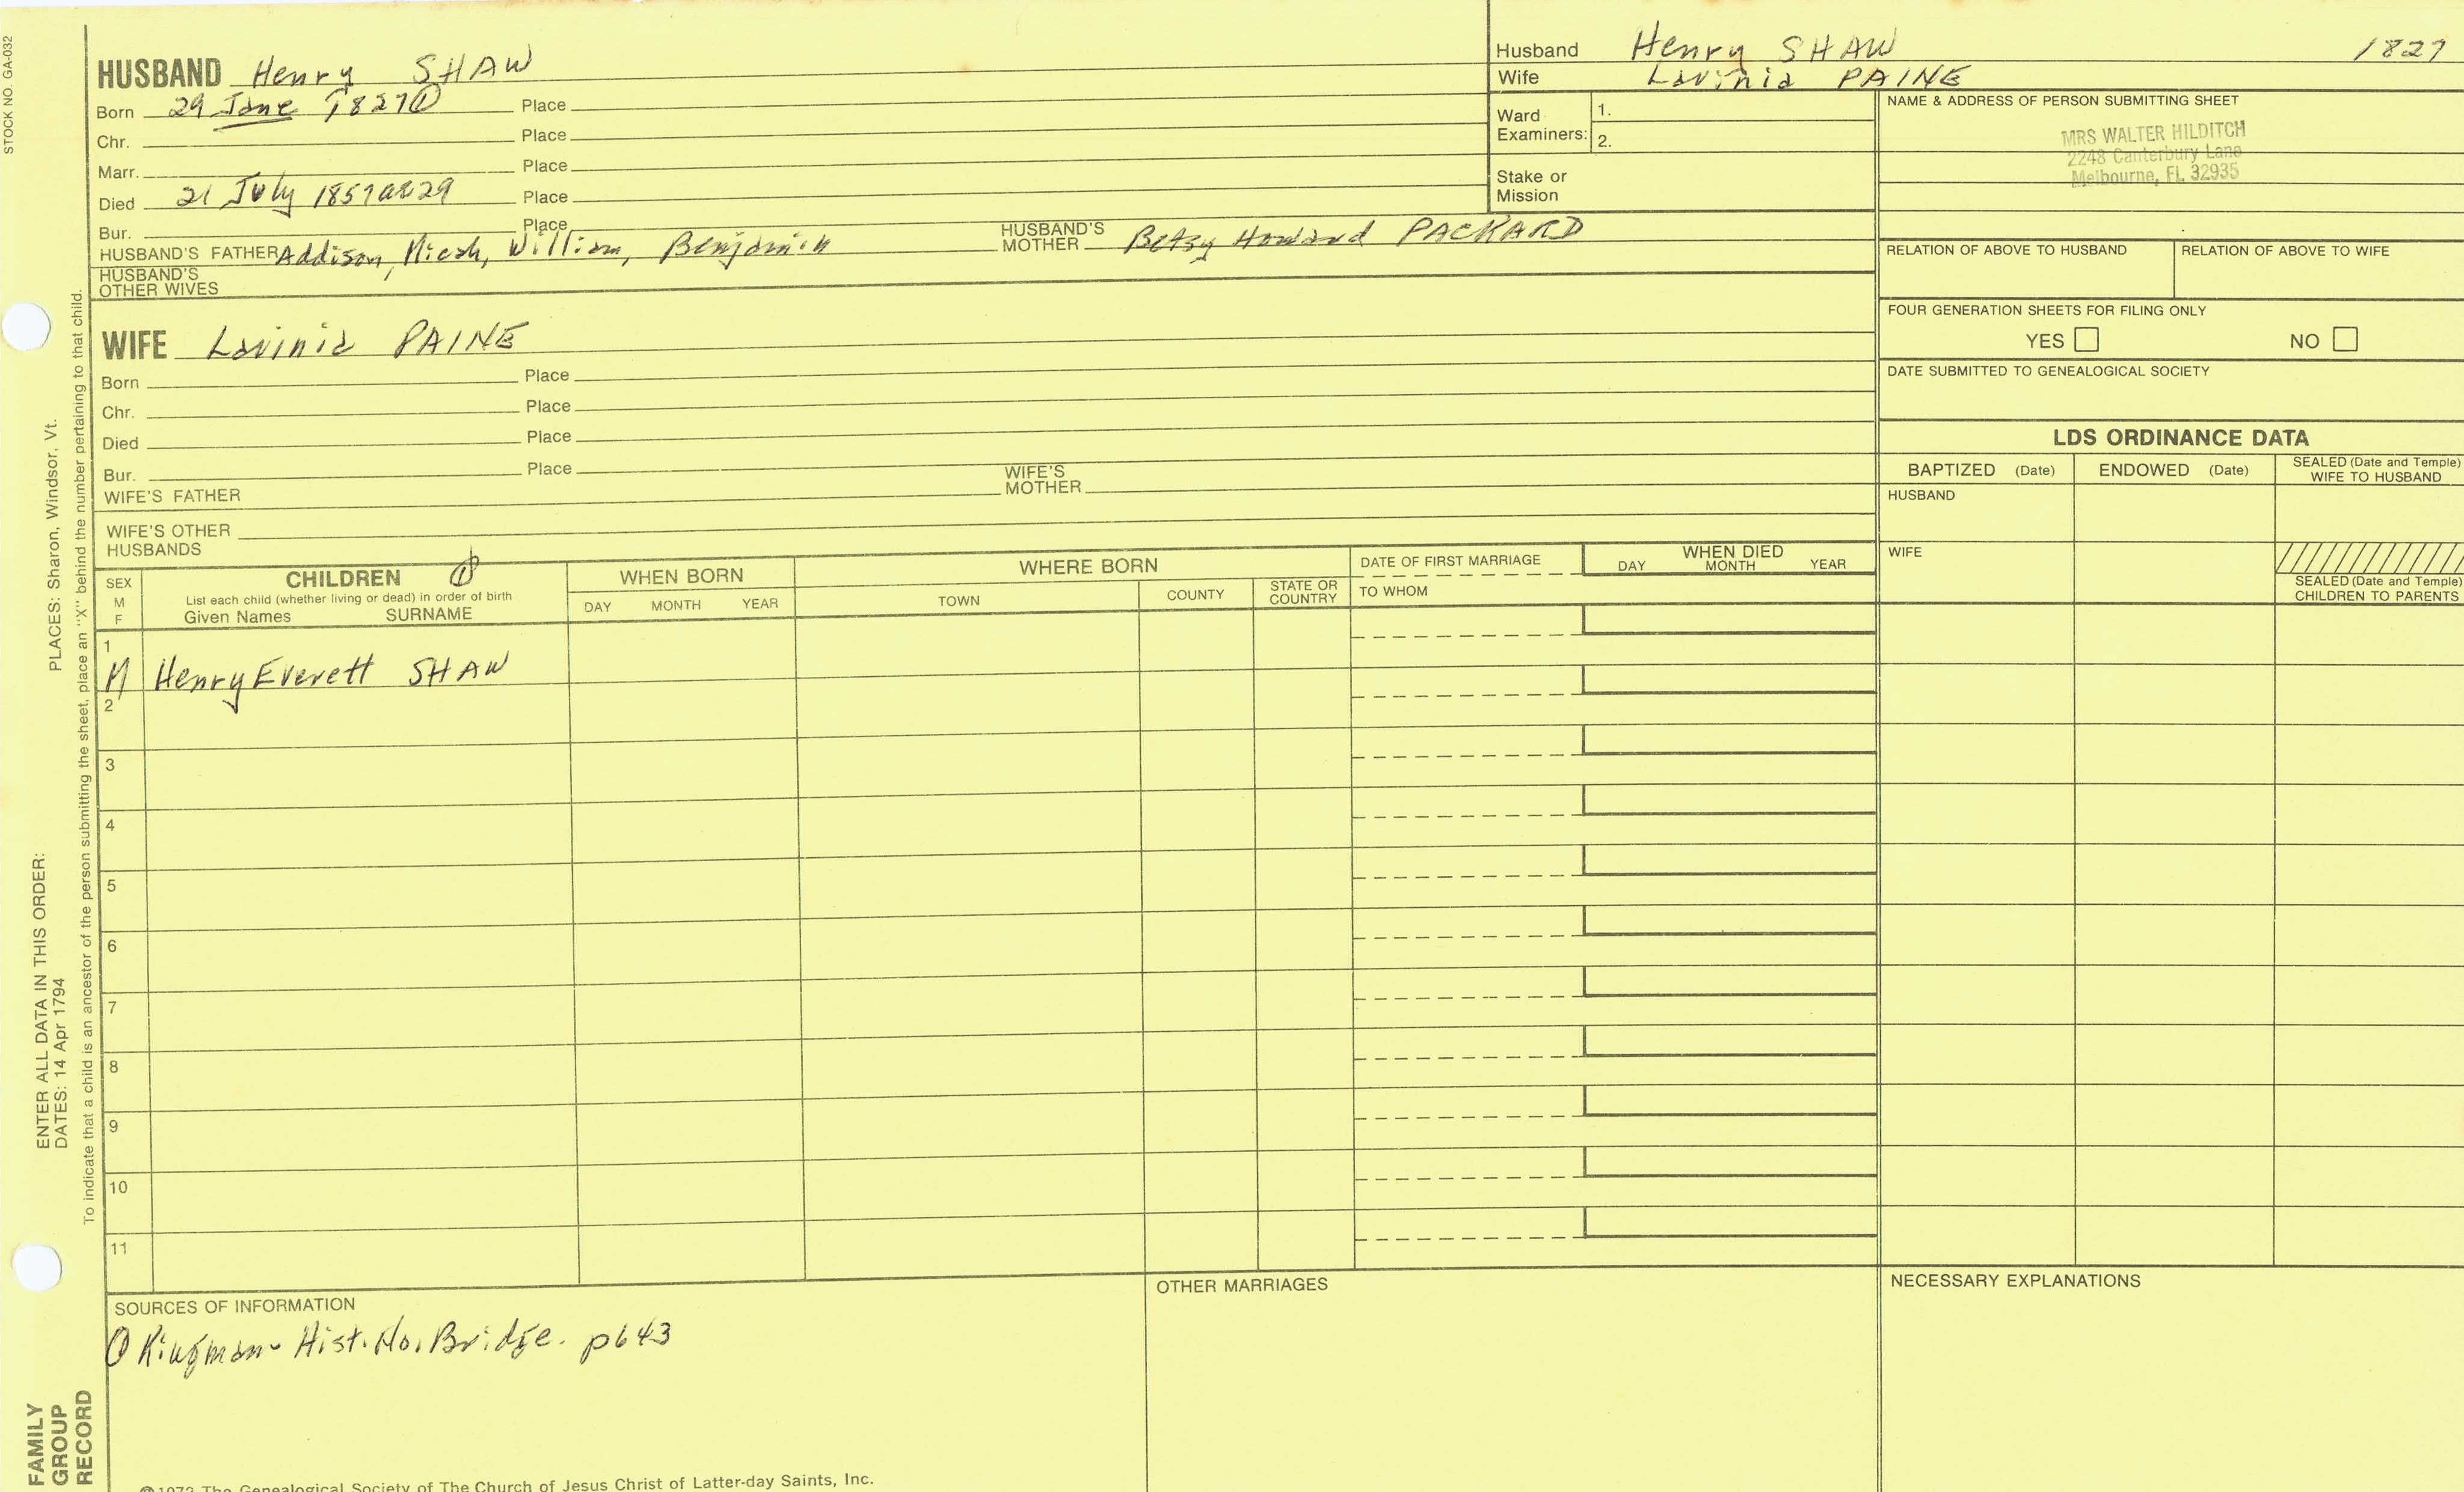 STOCK NO. GA-032
HUSBAND Henry SHAW
Born 29 June 1827 ① Place
Chr. Place
Marr. Place
Died 21 July 1857 ae 29 Place
Bur. Place
HUSBAND'S FATHER Addison, Micah, William, Benjamin HUSBAND'S MOTHER Betsy Howard PACKARD
HUSBAND'S OTHER WIVES
WIFE Lavinia PAINE
Born Place
Chr. Place
Died Place
Bur. Place
WIFE'S FATHER WIFE'S MOTHER
WIFE'S OTHER HUSBANDS
Husband Henry SHAW 1827
Wife Lavinia PAINE
Ward Examiners: 1.
2.
Stake or Mission
NAME & ADDRESS OF PERSON SUBMITTING SHEET
MRS WALTER HILDITCH
2248 Canterbury Lane
Melbourne, FL 32935
RELATION OF ABOVE TO HUSBAND RELATION OF ABOVE TO WIFE
FOUR GENERATION SHEETS FOR FILING ONLY
YES NO
DATE SUBMITTED TO GENEALOGICAL SOCIETY
LDS ORDINANCE DATA
BAPTIZED (Date) ENDOWED (Date) SEALED (Date and Temple) WIFE TO HUSBAND
HUSBAND
WIFE
SEALED (Date and Temple) CHILDREN TO PARENTS
SEX M F
CHILDREN ①
List each child (whether living or dead) in order of birth
Given Names SURNAME
WHEN BORN
DAY MONTH YEAR
WHERE BORN
TOWN COUNTY STATE OR COUNTRY
DATE OF FIRST MARRIAGE
TO WHOM
WHEN DIED
DAY MONTH YEAR
1
M Henry Everett SHAW
2
3
4
5
6
7
8
9
10
11
SOURCES OF INFORMATION
① Kingman - Hist. No. Bridge. p643
OTHER MARRIAGES
NECESSARY EXPLANATIONS
©1972 The Genealogical Society of The Church of Jesus Christ of Latter-day Saints, Inc.
FAMILY GROUP RECORD
ENTER ALL DATA IN THIS ORDER:
DATES: 14 Apr 1794 PLACES: Sharon, Windsor, Vt.
To indicate that a child is an ancestor of the person submitting the sheet, place an "X" behind the number pertaining to that child.